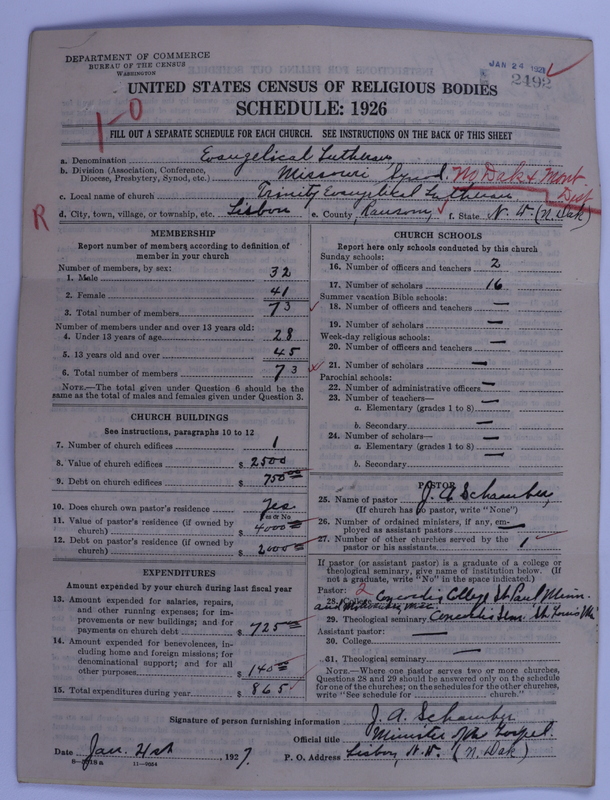 DEPARTMENT OF COMMERCE
BUREAU OF THE CENSUS
WASHINGTON
JAN 24 192
2492
UNITED STATES CENSUS OF RELIGIOUS BODIES
SCHEDULE: 1926
1-0
FILL OUT A SEPARATE SCHEDULE FOR EACH CHURCH. SEE INSTRUCTIONS ON THE BACK OF THIS SHEET
a. Denomination Evangelical Lutheran
b. Division (Association, Conference, Diocese, Presbytery, Synod, etc.) Missouri Synod No Dak & Mont Dist
c. Local name of church Trinity Evangelical Lutheran
R
d. City, town, village, or township, etc. Lisbon e. County, Ransom f. State N. D. (N. Dak)
MEMBERSHIP
Report number of members according to definition of
member in your church
Number of members, by sex:
1. Male 32
2. Female 41
3. Total number of members 73
Number of members under and over 13 years old:
4. Under 13 years of age 28
5. 13 years old and over 45
6. Total number of members 73
NOTE.—The total given under Question 6 should be
same as the total of males and females given under Question 3.
CHURCH BUILDINGS
See instructions, paragraphs 10 to 12
7. Number of church edifices 1
8. Value of church edifices $ 2500
9. Debt on church edifices $ 750
10. Does church own pastor's residence Yes
Yes or No
11. Value of pastor's residence (if owned by
church) $ 4000
12. Debt on pastor's residence (if owned by
church) $ 2000
EXPENDITURES
Amount expended by your church during last fiscal year
13. Amount expended for salaries, repairs,
and other running expenses; for im-
provements or new buildings; and for
payments on church debt $ 725
14. Amount expended for benevolences, in-
cluding home and foreign missions; for
denominational support; and for all
other purposes $ 140
15. Total expenditures during year $ 865
CHURCH SCHOOLS
Report here only schools conducted by this church
Sunday schools:
16. Number of officers and teachers 2
17. Number of scholars 16
Summer vacation Bible schools:
18. Number of officers and teachers —
19. Number of scholars —
Week-day religious schools:
20. Number of officers and teachers —
21. Number of scholars —
Parochial schools:
22. Number of administrative officers —
23. Number of teachers—
a. Elementary (grades 1 to 8) —
b. Secondary —
24. Number of scholars—
a. Elementary (grades 1 to 8) —
b. Secondary —
PASTOR
25. Name of pastor J. A. Schamber
(If church has no pastor, write "None")
26. Number of ordained ministers, if any, em-
ployed as assistant pastors —
27. Number of other churches served by the
pastor or his assistants 1
If pastor (or assistant pastor) is a graduate of a college or
theological seminary, give name of institution below. (If
not a graduate, write "No" in the space indicated.)
Pastor: 2
28. College Concordia College St. Paul Minn.
and
29. Theological seminary Concordia Sem. St. Louis Mo
Assistant pastor:
30. College —
31. Theological seminary —
NOTE.—Where one pastor serves two or more churches,
Questions 28 and 29 should be answered only on the schedule
for one of the churches; on the schedules for the other churches,
write "See schedule for church."
Signature of person furnishing information J. A. Schamber
Official title Minister of the Gospel.
Date Jan. 21st 1927. P. O. Address Lisbon, N. D. (N. Dak)
11—9054